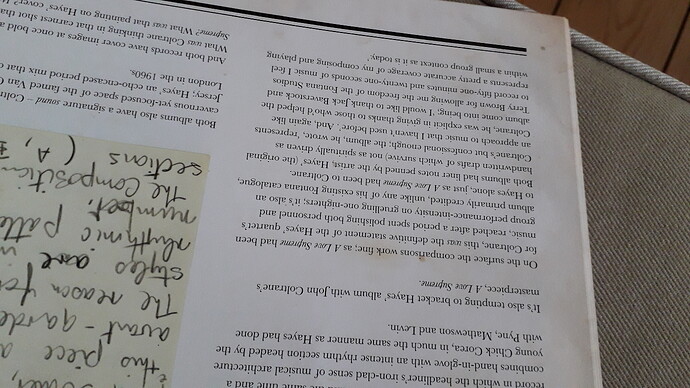 the same time and a
record in which the headliner's iron-clad sense of musical architecture
combines hand-in-glove with an intense rhythm section headed by the
young Chick Corea, in much the same manner as Hayes had done
with Pyne, Mathewson and Levin.
It's also tempting to bracket Hayes' album with John Coltrane's
masterpiece, A Love Supreme.
On the surface the comparisons work fine; as A Love Supreme had been
for Coltrane, this was the definitive statement of the Hayes' quartet's
music, reached after a period spent polishing both personnel and
group performance-intensity on gruelling one-nighters; it's also an
album primarily credited, unlike any of his existing Fontana catalogue,
to Hayes alone, just as A Love Supreme had been to Coltrane.
Both albums had liner notes penned by the artist, Hayes' (the original
handwritten drafts of which survive) not as spiritually driven as
Coltrane's but confessional enough; the album, he wrote, 'represents
an approach to music that I haven't used before'. And, again like
Coltrane, he was explicit in giving thanks to those who'd helped the
album come into being; 'I would like to thank Jack Baverstock and
Terry Brown for allowing me the freedom of the Fontana Studios
to record fifty-one minutes and twenty-one seconds of music I feel
represents a pretty accurate coverage of my composing and playing
within a small group context as it is today.'
this piece a
avant-garde
The reason for
styles are
rhythmic patte
number.
The composition
sections (A,
Both albums also have a signature sound – Coltr
cavernous-yet-focused space of the famed Van G
Jersey; Hayes' an echo-encased period mix that
London in the 1960s.
And both records have cover images at once bold a
What was Coltrane thinking in that earnest shot tha
Supreme? What was that painting on Hayes' cover?